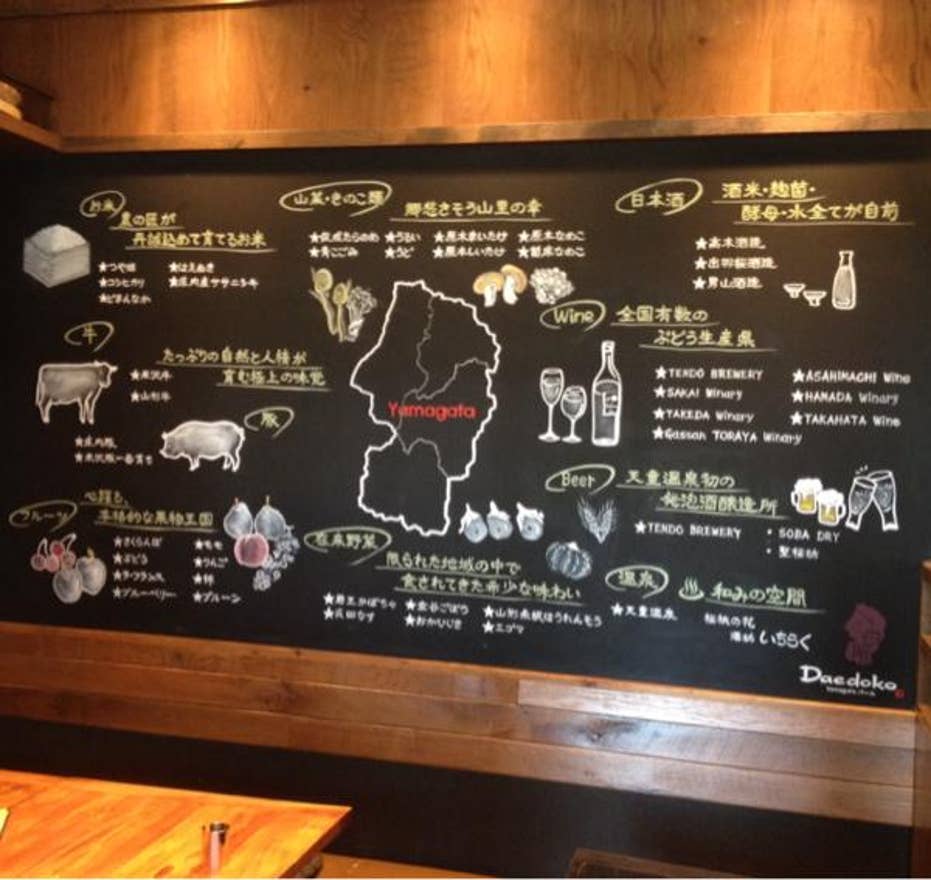 お米
農の匠が
丹誠込めて育てるお米
★つや姫 ★はえぬき
★コシヒカリ ★庄内産ササニシキ
★どまんなか
山菜・きのこ類
郷愁さそう山里の幸
★促成たらのめ ★うるい ★原木まいたけ ★原木なめこ
★青こごみ ★うど ★原木しいたけ ★菌床なめこ
日本酒
酒米・麹菌・
酵母・水全てが自前
★高木酒造
★出羽桜酒造
★男山酒造
牛
たっぷりの自然と人情が
育む極上の味覚
★米沢牛
★山形牛
豚
★庄内豚
★米沢豚一番育ち
Yamagata
Wine
全国有数の
ぶどう生産県
★TENDO BREWERY ★ASAHIMACHI Wine
★SAKAI Winary ★HAMADA Winary
★TAKEDA Winary ★TAKAHATA Wine
★Gassan TORAYA Winary
Beer
天童温泉初の
発泡酒醸造所
★TENDO BREWERY ・SOBA DRY
フルーツ
心躍る、
本格的な果物王国
★さくらんぼ ★もも
★ぶどう ★りんご
★ラ・フランス ★柿
★ブルーベリー ★プルーン
在来野菜
限られた地域の中で
食されてきた希少な味わい
★蔵王かぼちゃ ★金谷ごぼう ★山形赤根ほうれんそう
★民田なす ★おかひじき ★エゴマ
温泉
和みの空間
★天童温泉 桜桃の花
湯坊 いちらく
Daedoko
Yamagata バール